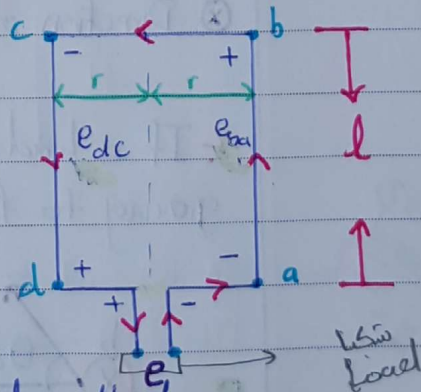 c - + b
r r
e_dc e_ba l
d + - a
+ -
e
Load